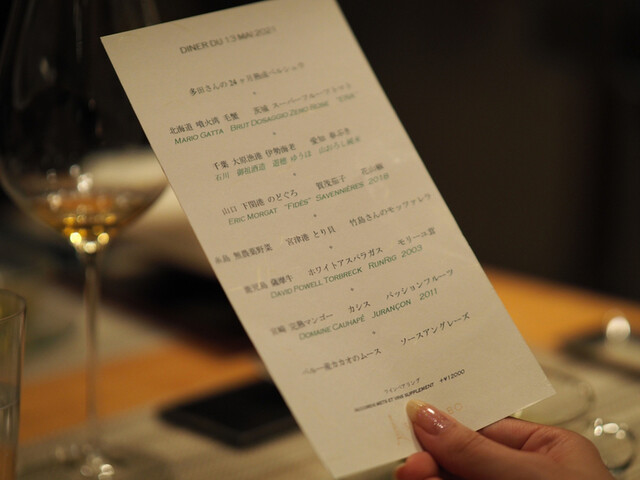 DINER DU 13 MAI 2021
多田さんの24ヶ月熟成ペルシュウ
北海道 噴火湾 毛蟹 茨城 スーパーフルーツトマト
MARIO GATTA BRUT DOSAGGIO ZERO ROSÉ
千葉 大原漁港 伊勢海老 愛知 泉ふき
石川 御祖酒造 遊穂 ゆうほ 山おろし純米
山口 下関港 のどぐろ 賀茂茄子 花山椒
ERIC MORGAT "FIDÈS" SAVENNIÈRES 2018
糸島 無農薬野菜 宮津港 とり貝 竹島さんのモッツァレラ
鹿児島 薩摩牛 ホワイトアスパラガス モリーユ茸
DAVID POWELL TORBRECK RUNRIG 2003
宮崎 完熟マンゴー カシス パッションフルーツ
DOMAINE CAUHAPÉ JURANÇON 2011
ペルー産カカオのムース ソースアングレーズ
ワインペアリング
ACCORDS METS ET VINS SUPPLEMENT +¥12000